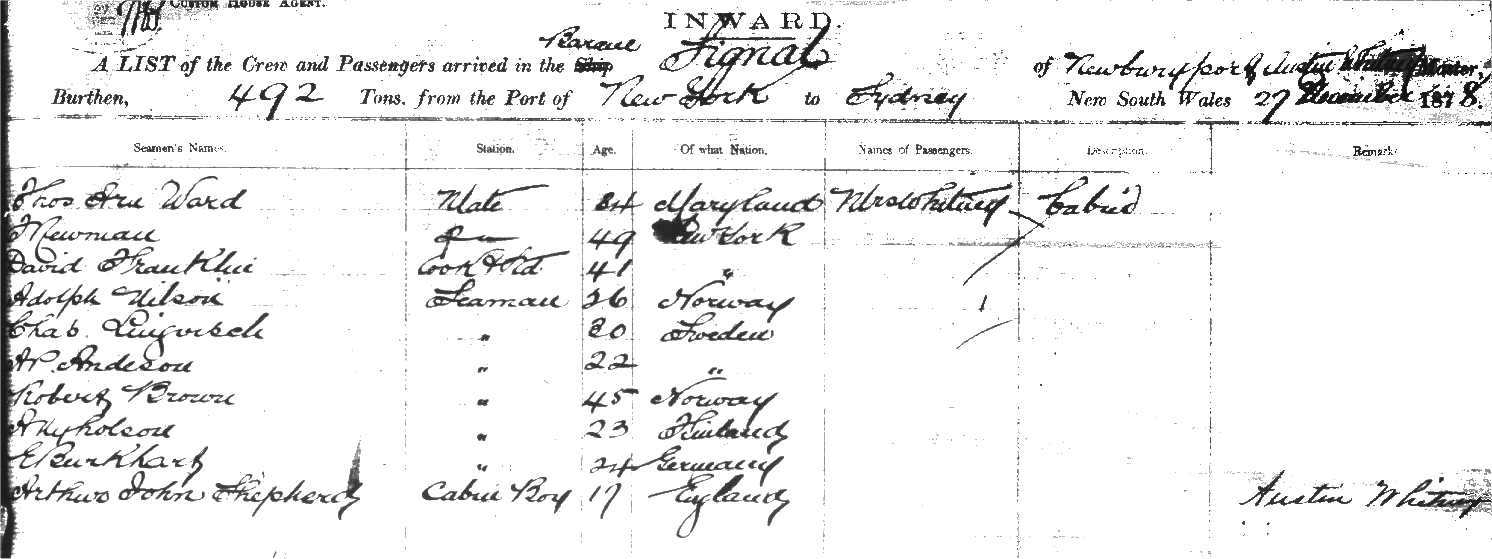 CUSTOM HOUSE AGENT.
INWARD.
Barque
A LIST of the Crew and Passengers arrived in the Ship Signal of Newburyport, Austin Whitney Master,
Burthen, 492 Tons, from the Port of New York to Sydney New South Wales 27 December 1878.
Seamen's Names. Station. Age. Of what Nation. Names of Passengers. Description. Remarks
Thos Ward Mate 34 Maryland Mrs Whitney Cabin
Newman 49 New York
David Franklin Cook & Std 41 "
Adolph Nilson Seaman 26 Norway
Chas. " 20 Sweden
A P. Andeson " 22 "
Robert Brown " 45 Norway
A Nyholson " 23 Finland
E Burkhart " 24 Germany
Arthur John Shepherd Cabin Boy 17 England Austin Whitney